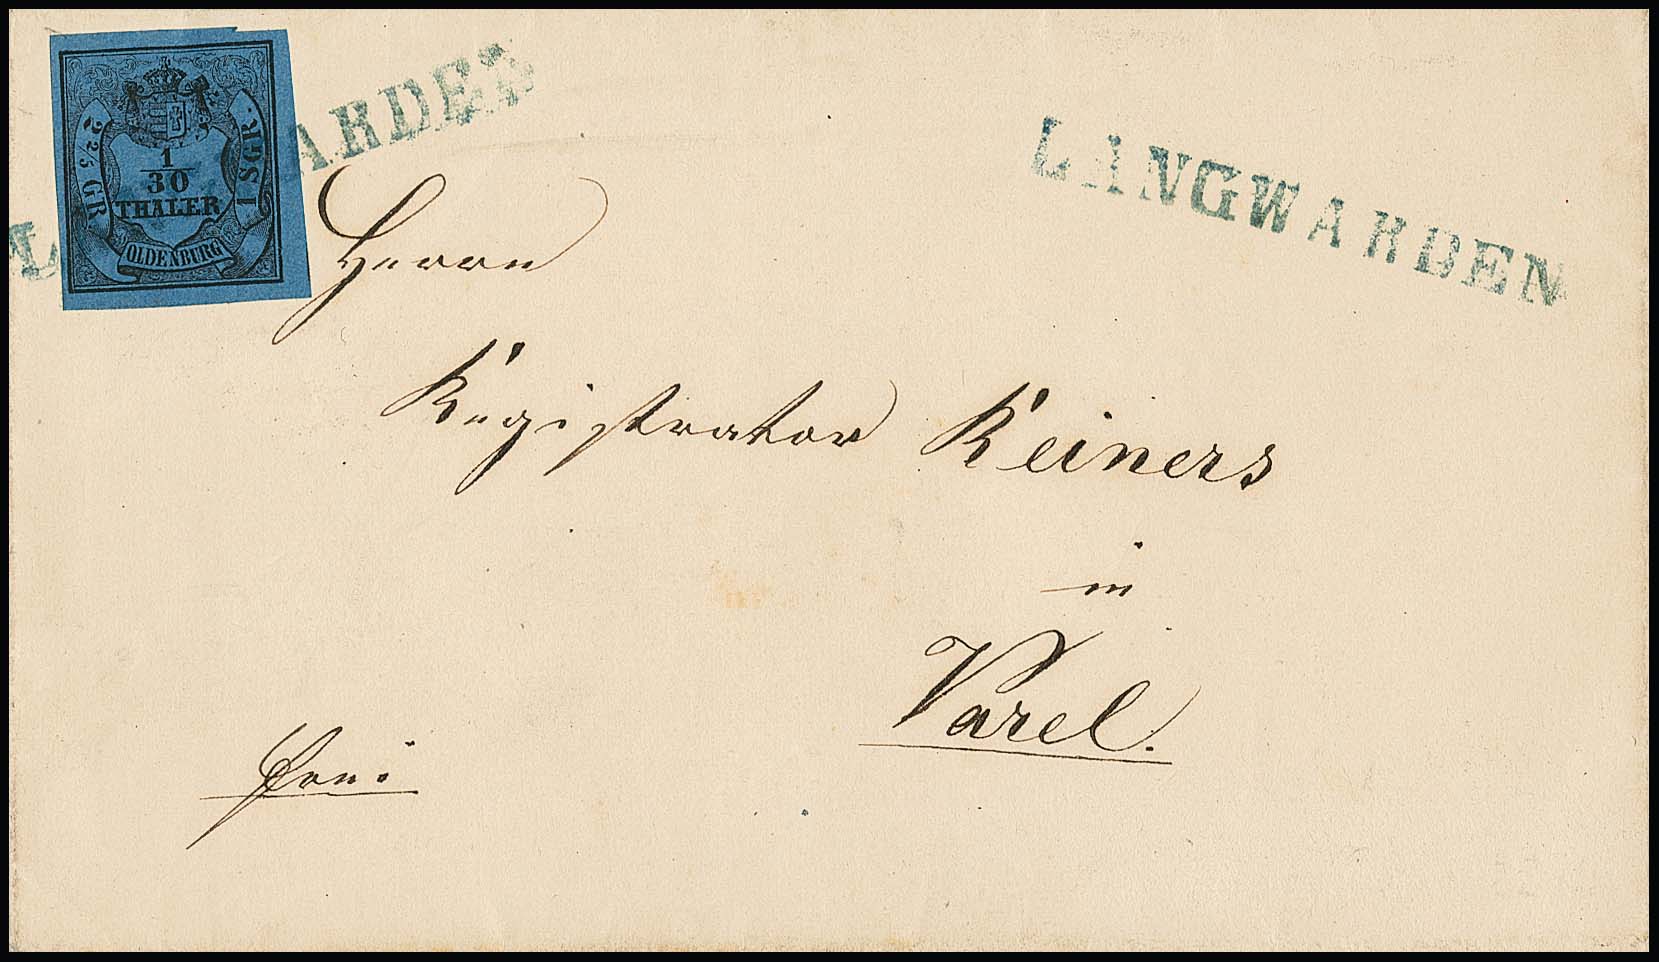 LANGWARDEN
LANGWARDEN
2 2/5 GR.
1 SGR.
1/30
THALER
OLDENBURG
Herrn
Registrator Reiners
in
Varel.
frei